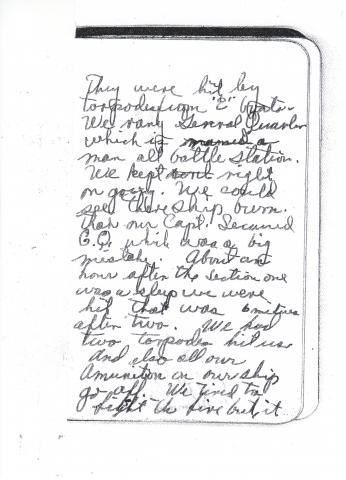 They were hit by
torpedies from "E" boats.
We rang General Quarters
which is maned a
man all battle station.
We kept right
on going. We could
see there ship burn.
than our Capt. Secured
G.Q. which was a big
mistake. About an
hour after the section one
was a sleep we were
hit that was 6 mitues
after two. We had
two torpedos hit us
and also all our
amunition on our ship
go off. We tired to
fight the fire but it